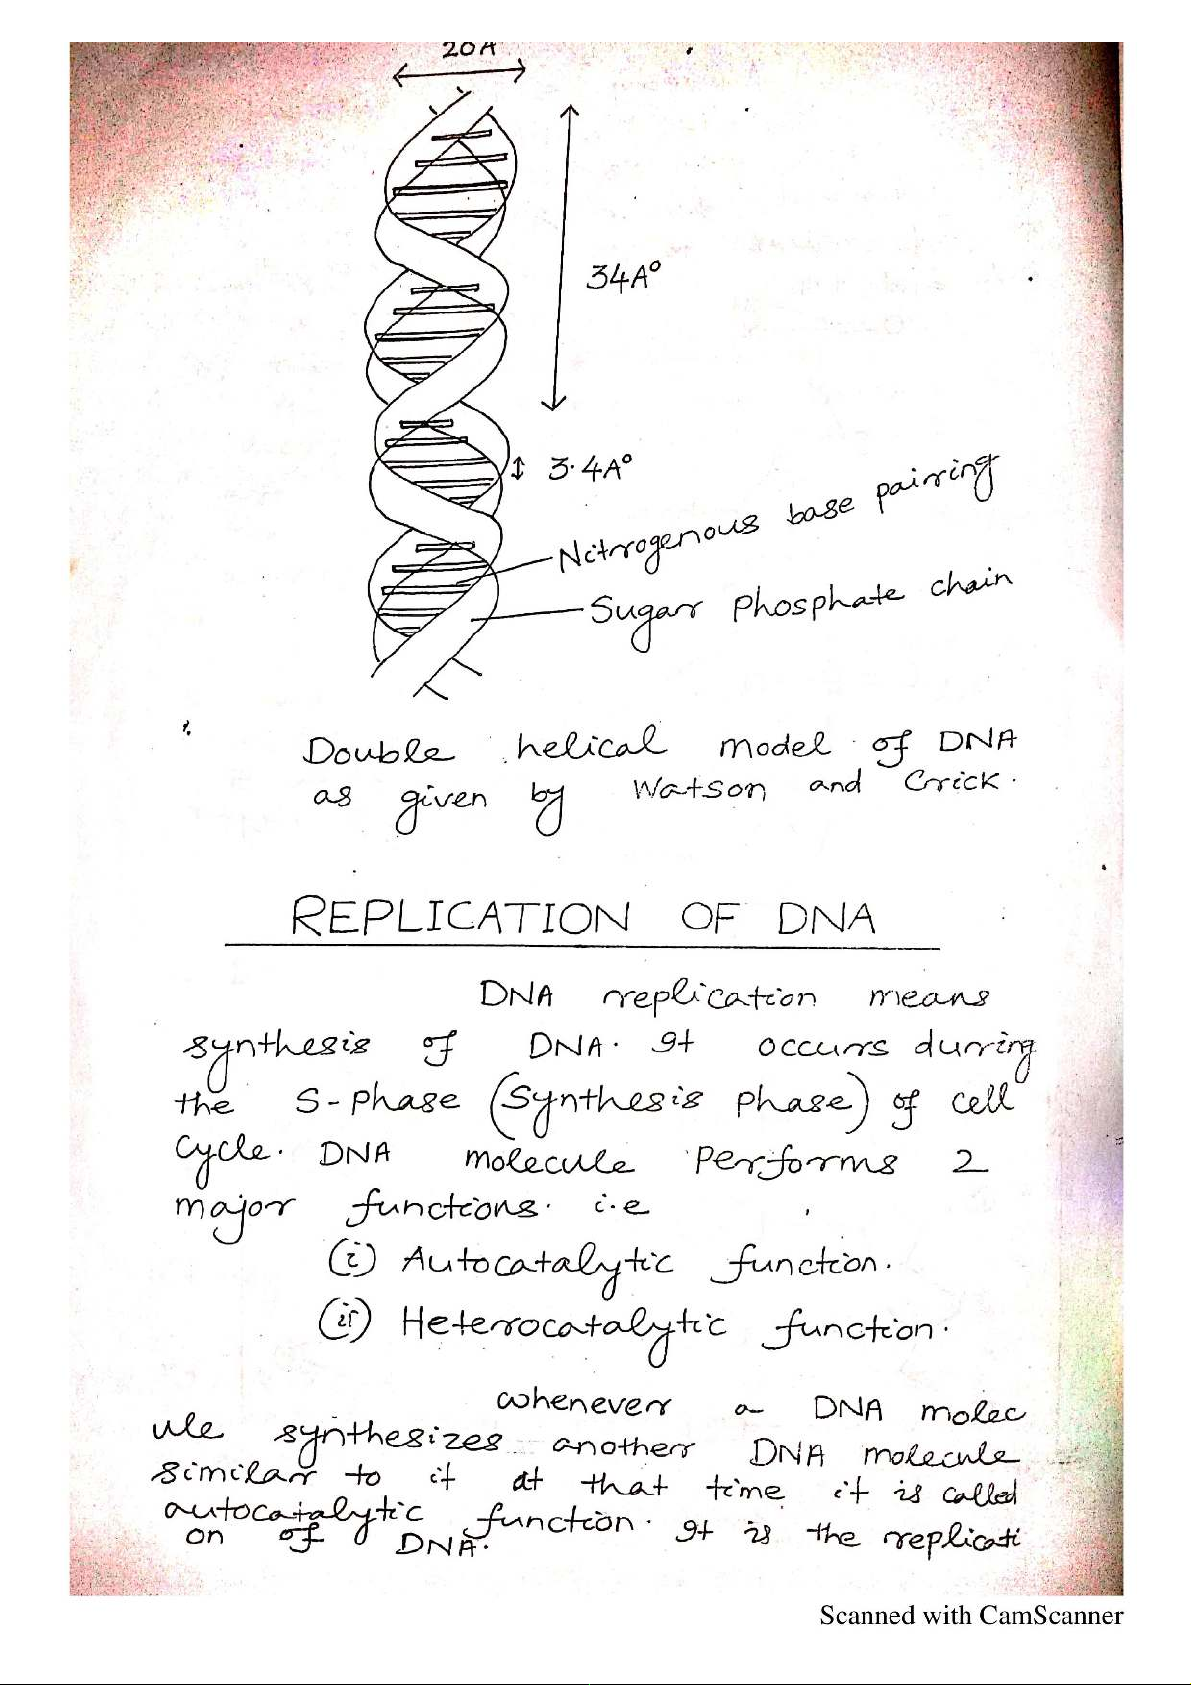 20A
34A°
3.4A°
Nitrogenous base pairing
Sugar phosphate chain
Double helical model of DNA
as given by Watson and Crick.
REPLICATION OF DNA
DNA replication means
synthesis of DNA. It occurs during
the S-phase (Synthesis phase) of cell
cycle. DNA molecule performs 2
major functions. i.e
(i) Autocatalytic function.
(ii) Heterocatalytic function.
whenever a DNA molec
ule synthesizes another DNA molecule
similar to it at that time it is called
autocatalytic function. It is the replicati
on of DNA.
Scanned with CamScanner